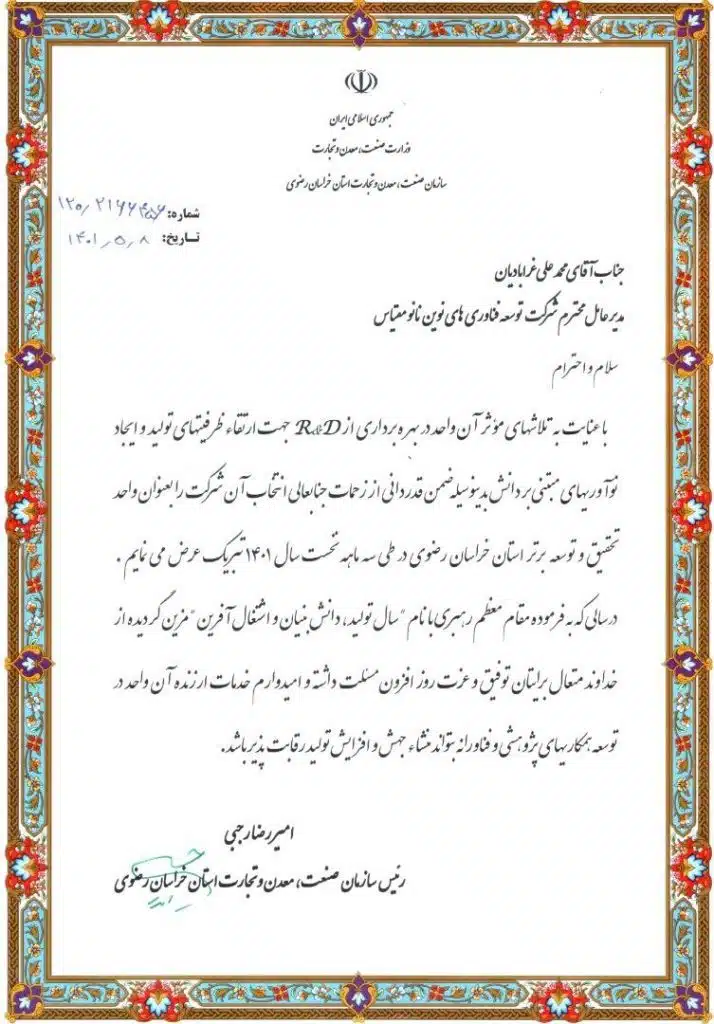 جمهوری اسلامی ایران
وزارت صنعت، معدن و تجارت
سازمان صنعت، معدن و تجارت استان خراسان رضوی
شماره: ۱۲۰٫۲۱۶۶۴۵۶
تاریخ: ۱۴۰۱٫۵٫۸
جناب آقای محمد علی غرابادیان
مدیر عامل محترم شرکت توسعه فناوری های نوین نانو مقیاس
سلام و احترام
با عنایت به تلاشهای مؤثر آن واحد در بهره برداری از R&D جهت ارتقاء ظرفیتهای تولید و ایجاد
نوآوریهای مبتنی بر دانش بدینوسیله ضمن قدردانی از زحمات جنابعالی انتخاب آن شرکت را بعنوان واحد
تحقیق و توسعه برتر استان خراسان رضوی در طی سه ماهه نخست سال ۱۴۰۱ تبریک عرض می نمایم .
در سالی که به فرموده مقام معظم رهبری با نام "سال تولید، دانش بنیان و اشتغال آفرین" مزین گردیده از
خداوند متعال برایتان توفیق و عزت روز افزون مسئلت داشته و امیدوارم خدمات ارزنده آن واحد در
توسعه همکاریهای پژوهشی و فناورانه بتواند منشاء جهش و افزایش تولید رقابت پذیر باشد.
امیررضا رجبی
رئیس سازمان صنعت، معدن و تجارت استان خراسان رضوی